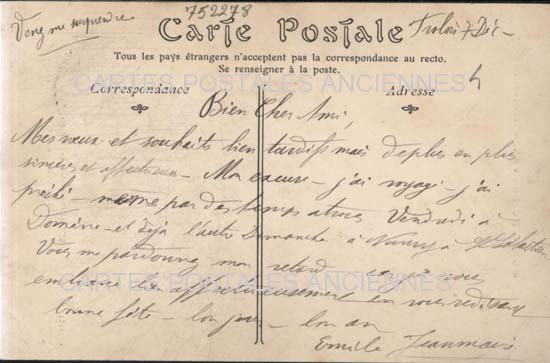 Venez me surprendre
752278
Carte Postale
Trolois 7 Déc -
Tous les pays étrangers n'acceptent pas la correspondance au recto.
Se renseigner à la poste.
CARTES POSTALES ANCIENNES
Correspondance
Adresse
Bien Cher Ami,
Mes vœux et souhaits bien tardifs mais de plus en plus
sincères et affectueux - Mon excuse - j'ai voyagé - j'ai
prêché - même par des temps atroces Vendredi à
Domèvre - et déjà l'autre Dimanche à Nancy à St Sébastien
Vous me pardonnez mon retard
CARTES POSTALES ANCIENNES
affectueusement en vous redisant
bonne fête - bon jour - bon an
Emile Jeanmaire